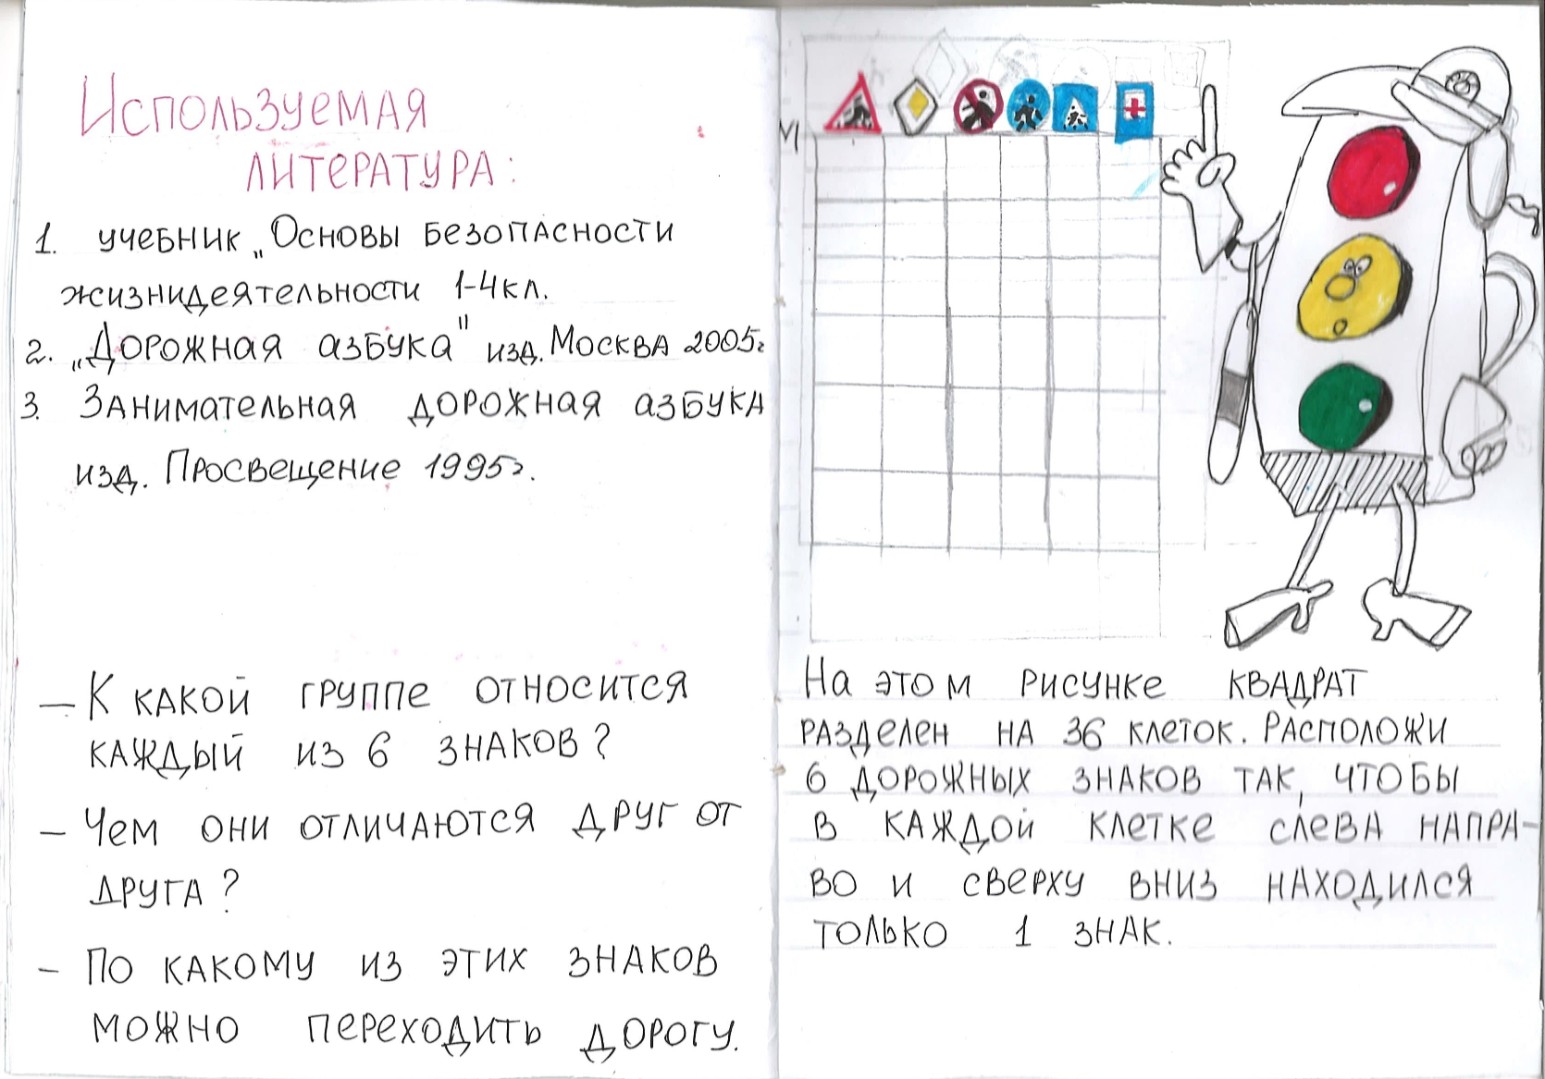 Используемая
литература:
1. учебник „Основы безопасности
жизнидеятельности 1-4кл.
2. „Дорожная азбука" изд. Москва 2005г
3. Занимательная дорожная азбука
изд. Просвещение 1995г.
— К какой группе относится
каждый из 6 знаков?
— Чем они отличаются друг от
друга?
- По какому из этих знаков
можно переходить дорогу.
На этом рисунке квадрат
разделен на 36 клеток. Расположи
6 дорожных знаков так, чтобы
в каждой клетке слева напра-
во и сверху вниз находился
только 1 знак.